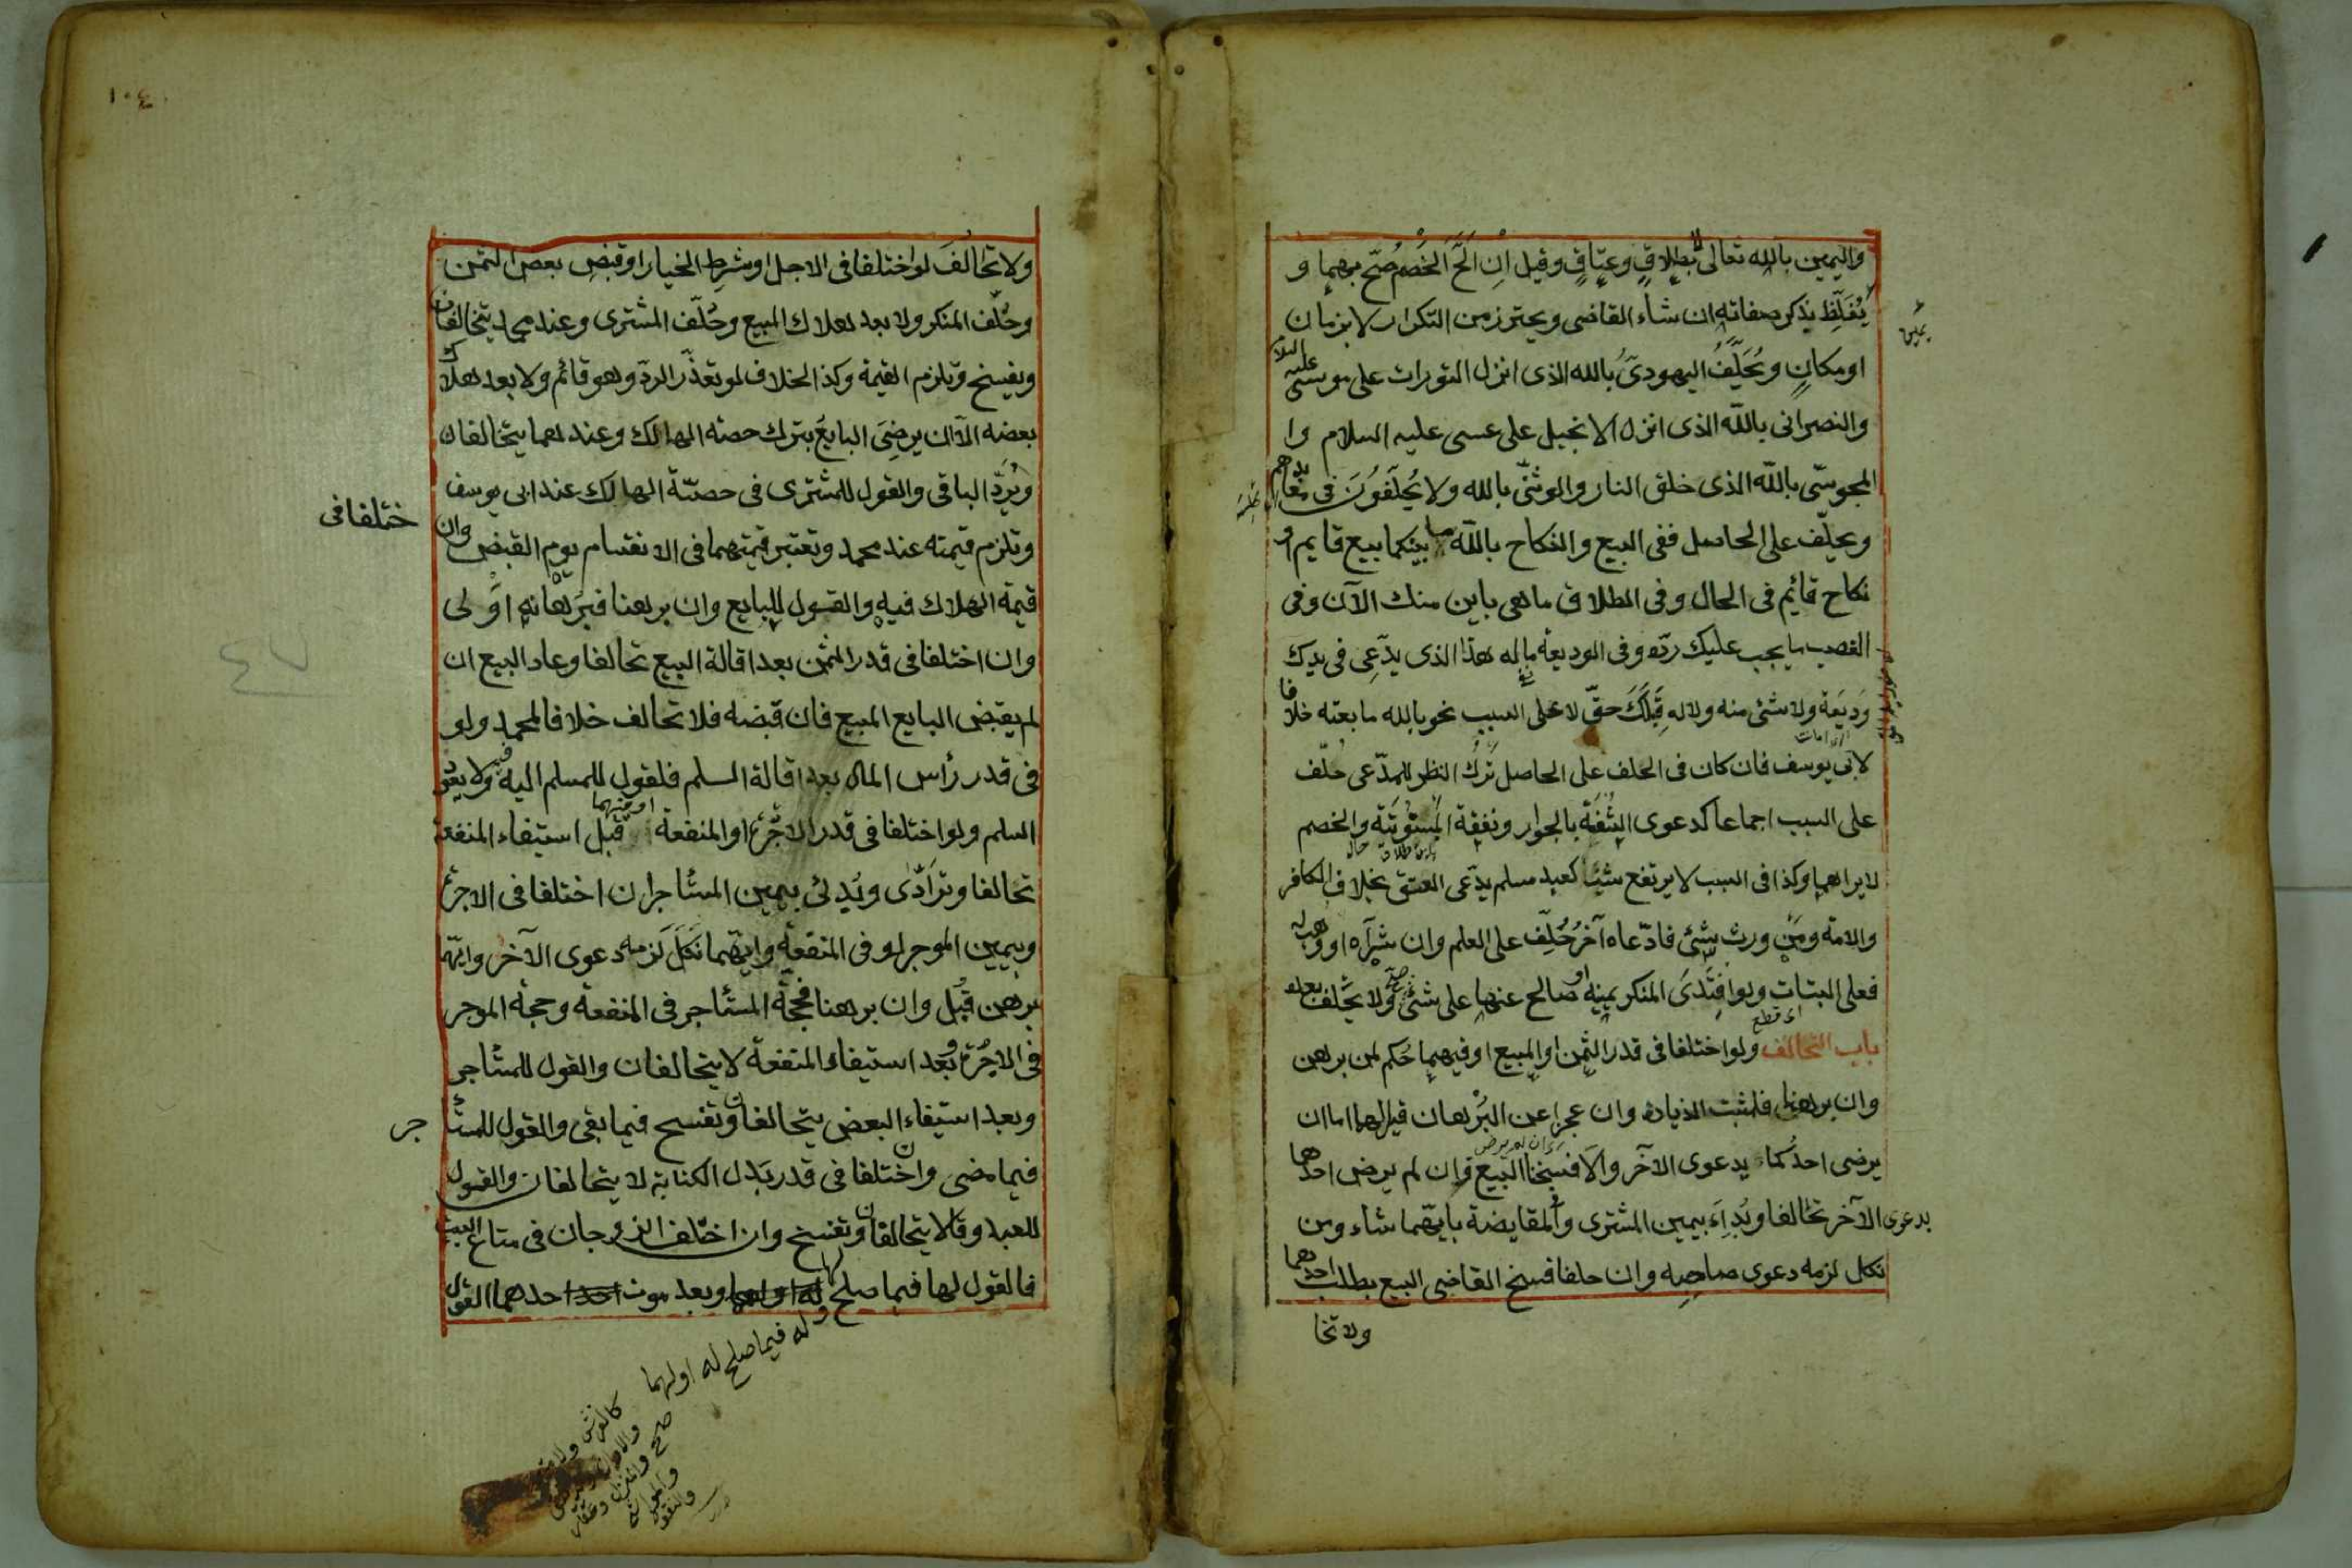 واليمين بالله تعالى لا بطلاق وعتاق وقيل ان الحّ الخصم صحّ بهما و
يُغلِّظ بذكر صفاته ان شاء القاضى ويحترز من التكرار لا بزمان
او مكان ويُحلَّفُ اليهودىُّ بالله الذى انزل التورات على موسى عليه السلام
والنصرانى بالله الذى انزل الانجيل على عسى عليه السلام وا
المجوسّى بالله الذى خلق النار والوثنّى بالله ولا يُحلَّفُونَ فى معابدهم
ويحلّف على الحاصل ففى البيع والنكاح بالله ما بينكما بيع قايم او
نكاح قائم فى الحال وفى الطلاق ما هى باين منك الآن وفى
الغصب ما يجب عليك ردّه وفى الوديعة ما له هذا الذى يدّعى فى يدك
وديعة ولا شئ منه ولا له قِبَلَكَ حقّ لا على السبب نحو بالله ما بعته خلافا
لابى يوسف فان كان فى الحلف على الحاصل تَرْكُ النظر للمدّعى حُلّف
على السبب اجماعا كدعوى الشفعة بالجوار ونفقة المبتوتة والخصم
لا يراهما وكذا فى السبب لا يرتفع شيئا كعبد مسلم يدّعى العتق بخلاف الكافر
والامة ومن ورث شئ فادّعاه آخرُ حُلِّف على العلم وان شرآه او وهب له
فعلى البتات ولو افتَدَى المنكر يمينه او صالح عنها على شئ صحّ ولا يحَّلف بعده
اى قطع
باب التحالف ولو اختلفا فى قدر الثمن او المبيع او فيهما حُكم لمن برهن
وان برهنا فلمثبت الذيادة وان عجزا عن البُرْهان قيل لهما اما ان
يرضى احدُكما بدعوى الآخر والّا فسخنا البيع فان لم يرض احدهما
بدعوى الآخر تحالفا وبُدِاَ بيمين المشترى وفى المقايضة بايّهما شاء ومن
نكل لزمه دعوى صاحِبِه وان حلفا فسخ القاضى البيع بطلب احدهما
ولا تحا
١٠٤
ولا تحالُفَ لو اختلفا فى الاجل او شرطِ الخيار او قبضِ بعض الثمن
وحُلّف المنكر ولا بعد هلاك المبيع وحُلّف المشترى وعند محمد يتحالفان
ويفسخ وتلزم القيمة وكذا الخلاف لو تعذّر الردّ وهو قائم ولا بعد هلاك
بعضه الّا ان يرضِىَ البايعُ بترك حصة الهالك وعندهما يتحالفان
ويُردّ الباقى والقول للمشترى فى حصّة الهالك عند ابى يوسف
وتلزم قيمته عند محمد وتعتبر قيمتهما فى الانقسام يوم القبض وان
ختلفا فى
قيمة الهلاك فيه والقول للبايع وان برهنا فبرهانه اَوْلى
وان اختلفا فى قدر الثمن بعد اقالة البيع تحالفا وعاد البيع ان
لم يقبض البايع المبيع فان قبضه فلا تحالف خلافا لمحمد ولو
فى قدر رأس المال بعد اقالة السلم فلقول للمسلم اليه فيه ولا يعود
السلم ولو اختلفا فى قدر الاجرة او المنفعة او فيهما قبل استيفاء المنفعة
تحالفا وترادّى وبُدئ بيمين المستأجر ان اختلفا فى الاجرة
وبيمين الموجر لو فى المنفعة وايّهما نَكَلَ لزمه دعوى الآخر وايّهما
برهن قُبل وان برهنا فحجّة المستأجر فى المنفعة وحجة الموجر
فى الاجرة وبعد استيفاء المنفعة لا يتحالفان والقول للمستأجر
وبعد استيفاء البعض يتحالفان وتفسح فيما بقى والقول للمستأ
جر
فيما مضى وان اختلفا فى قدر بَدل الكتابة لا يتحالفان والقول
للعبد وقالا يتحالفان وتفسخ وان اختلف الزوجان فى متاع البيت
فالقول لها فيما صلح لها وبعد موت احدهما القول
وله فيما صلح له او لهما